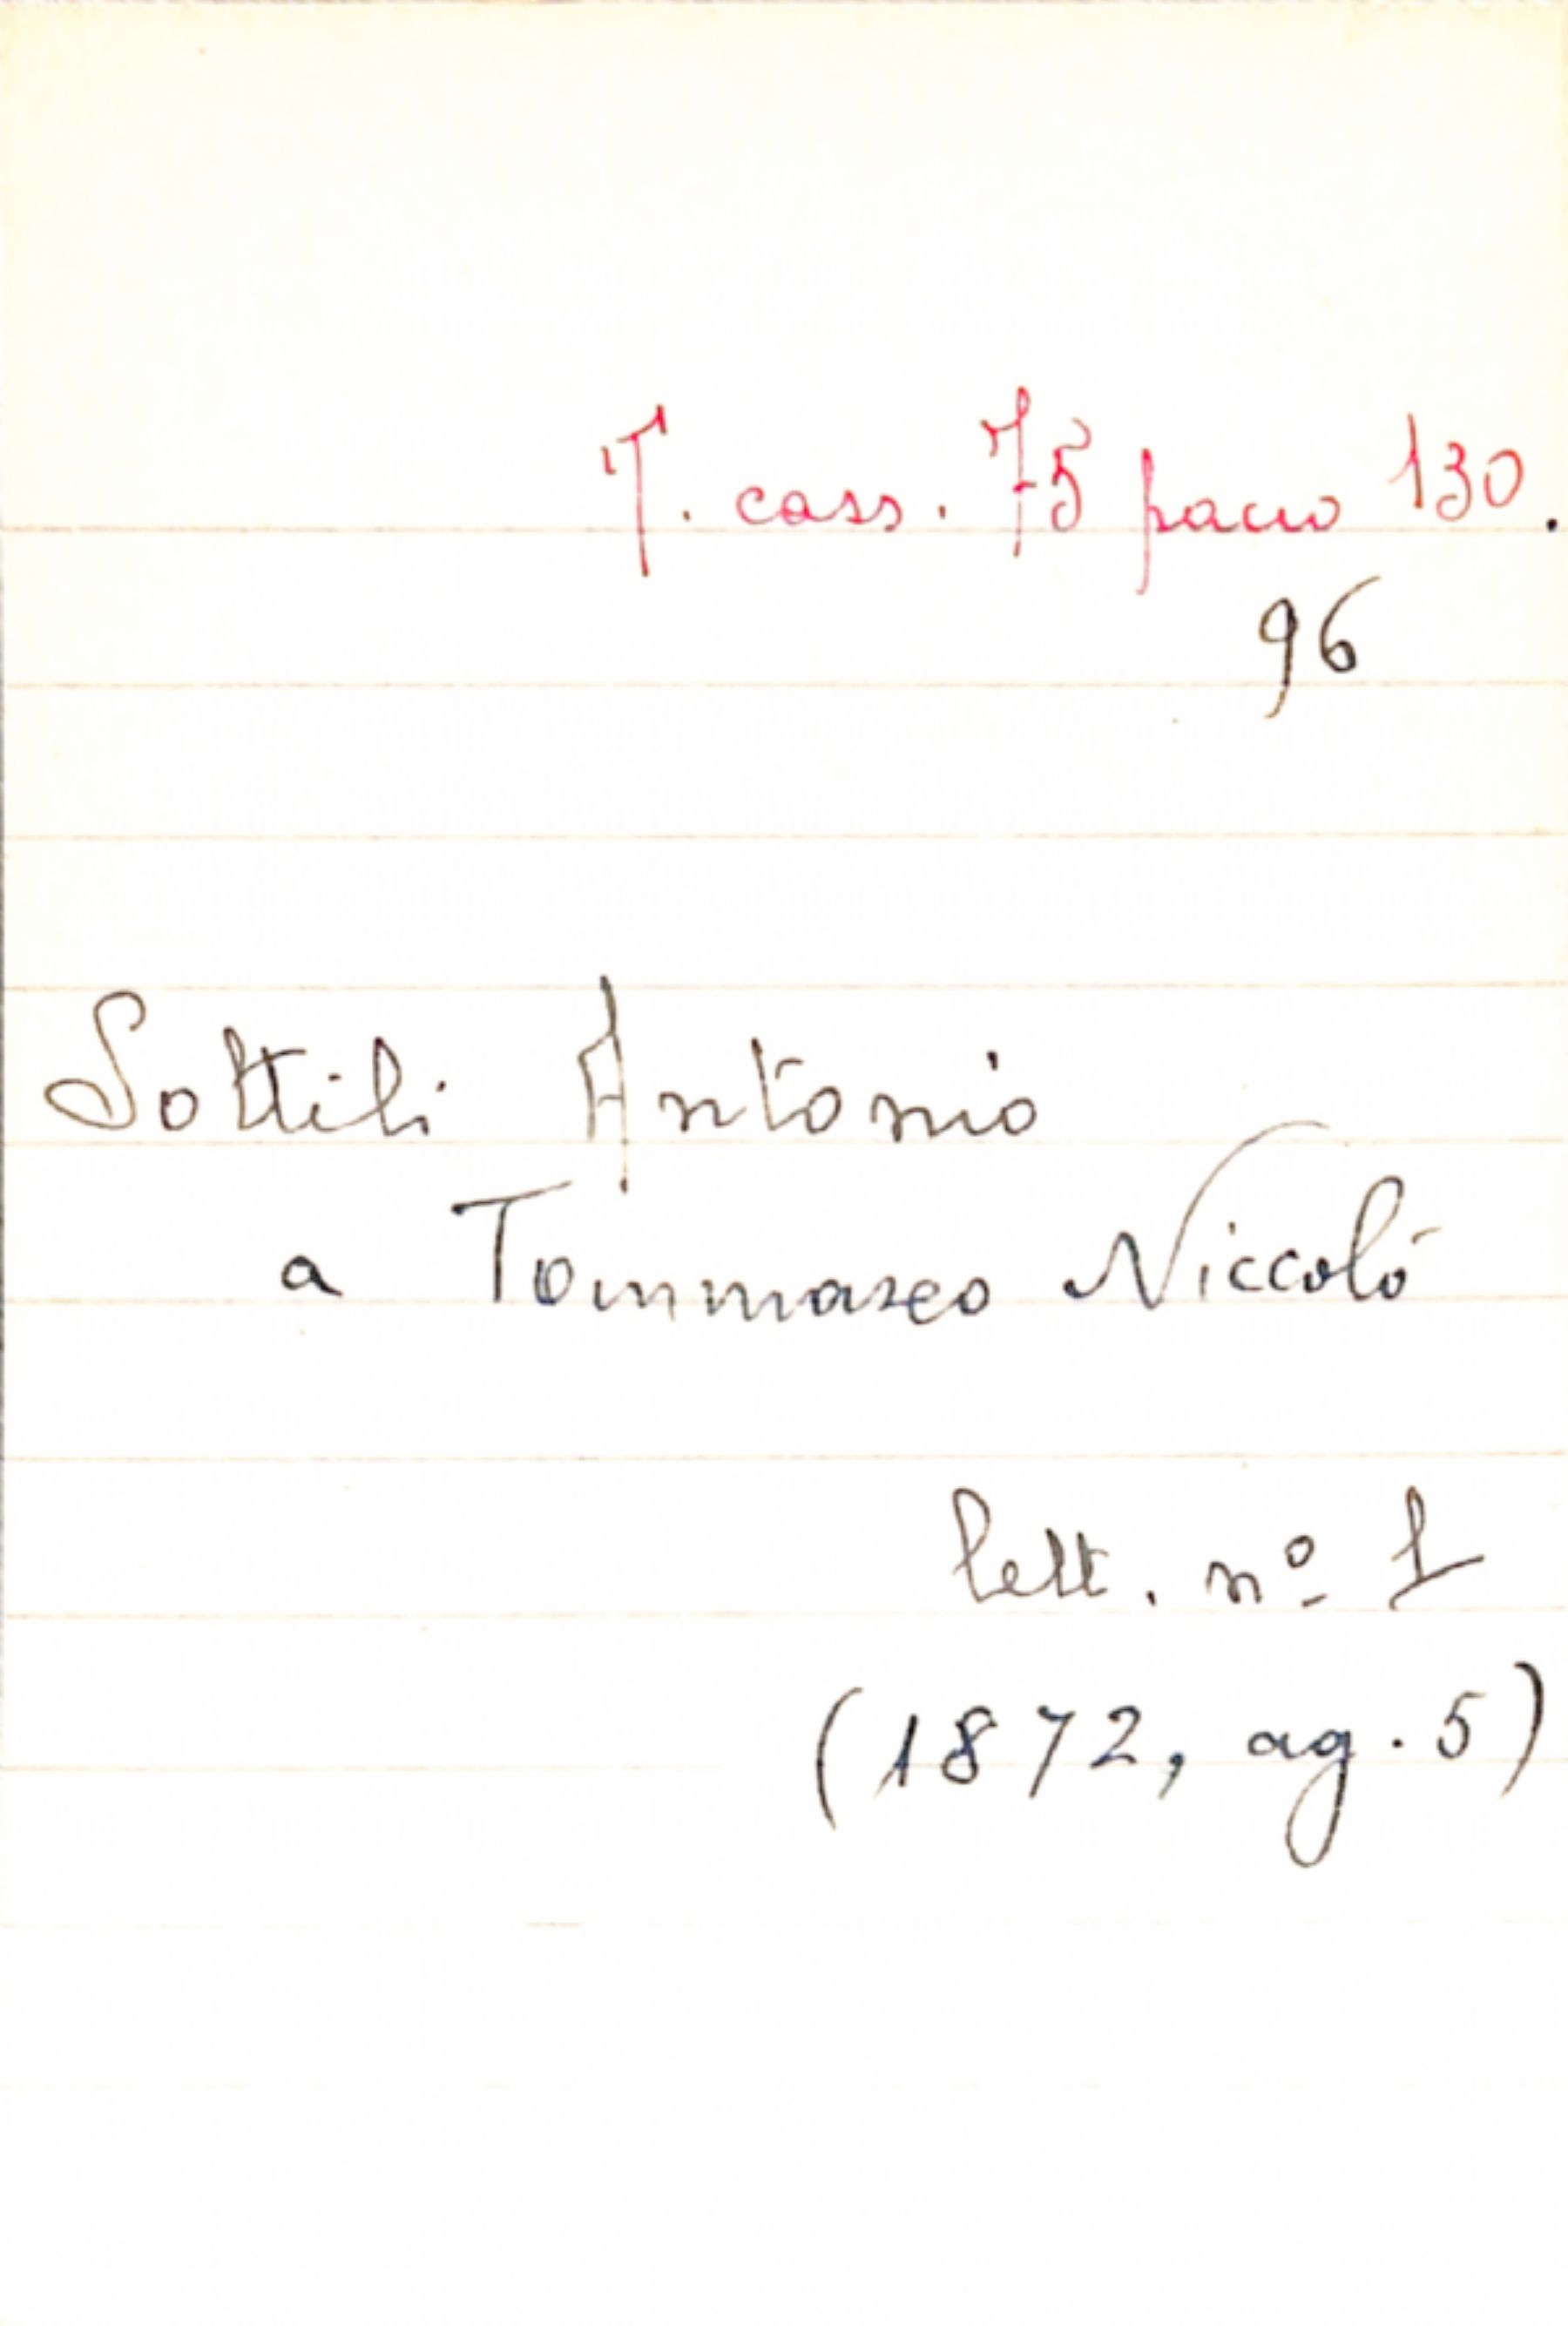 T. cass. 75 pacco 130.
96
Sottili Antonio
a Tommaseo Niccolò
lett. nº 1
(1872, ag. 5)